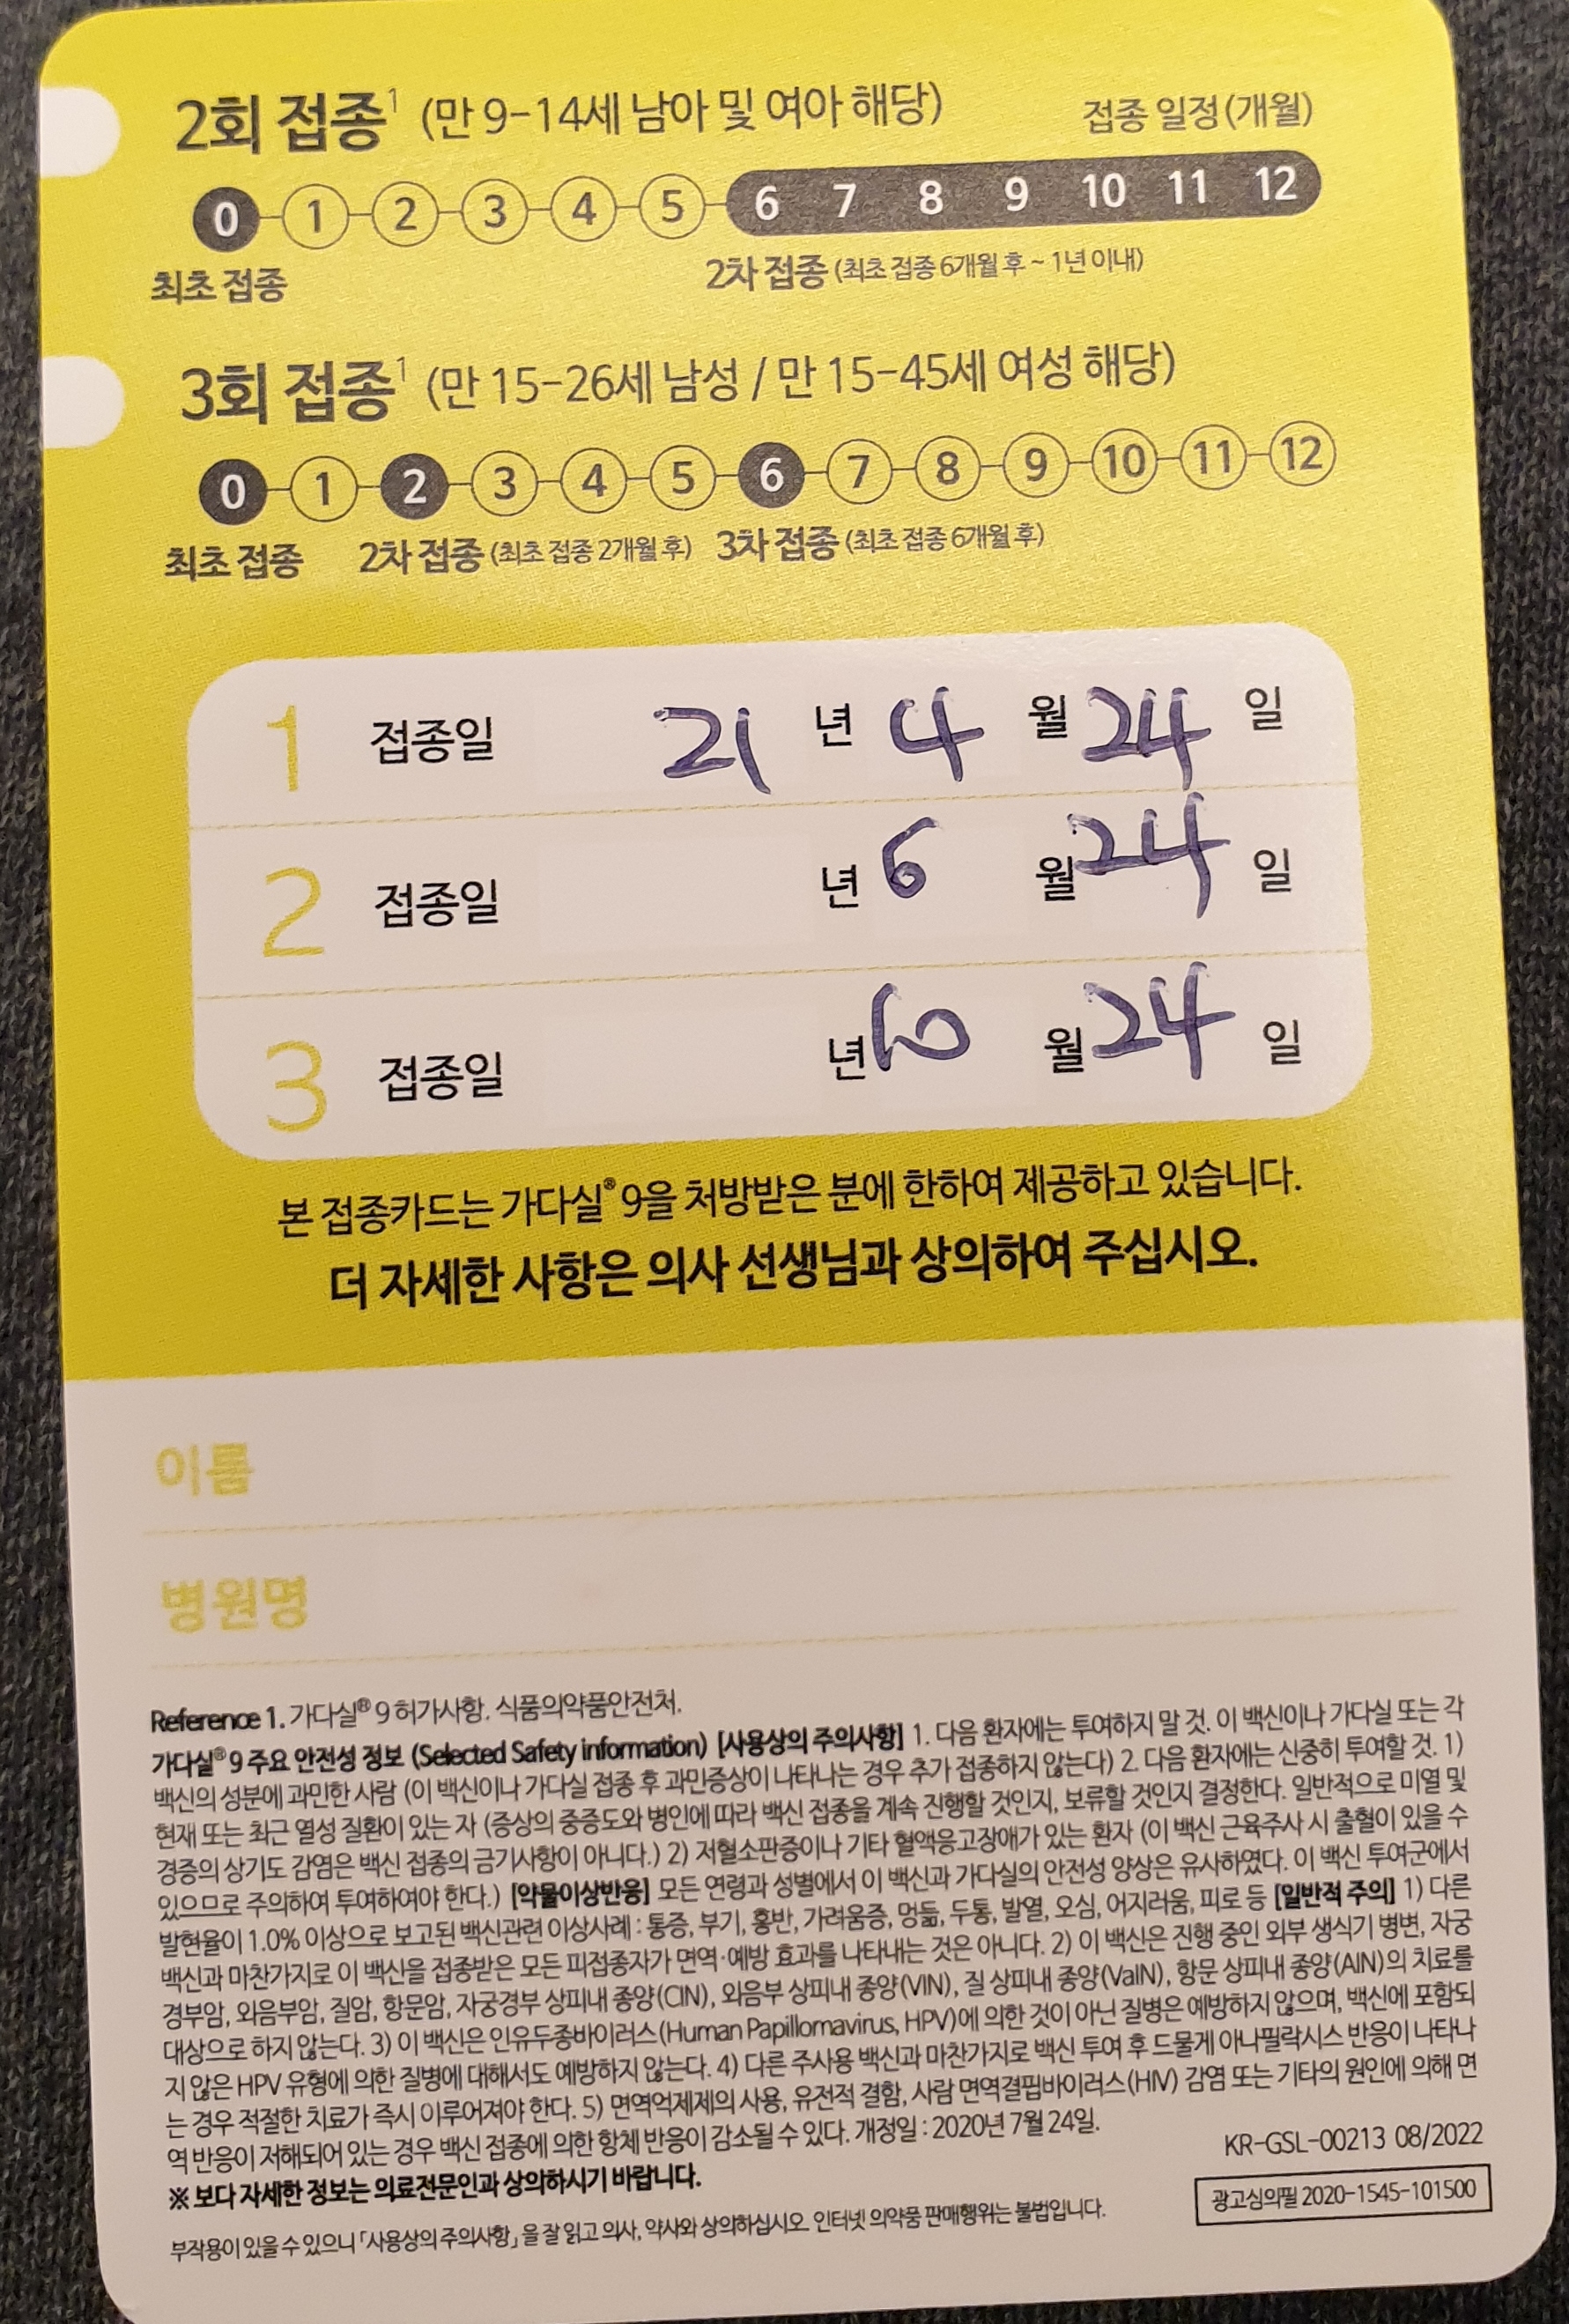 2회 접종¹ (만 9-14세 남아 및 여아 해당) 접종 일정(개월)
0 1 2 3 4 5 6 7 8 9 10 11 12
최초 접종 2차 접종 (최초 접종 6개월 후 ~ 1년 이내)
3회 접종¹ (만 15-26세 남성 / 만 15-45세 여성 해당)
0 1 2 3 4 5 6 7 8 9 10 11 12
최초 접종 2차 접종 (최초 접종 2개월 후) 3차 접종 (최초 접종 6개월 후)
1 접종일 21 년 4 월 24 일
2 접종일 년 6 월 24 일
3 접종일 년 10 월 24 일
본 접종카드는 가다실® 9을 처방받은 분에 한하여 제공하고 있습니다.
더 자세한 사항은 의사 선생님과 상의하여 주십시오.
이름
병원명
Reference 1. 가다실® 9 허가사항. 식품의약품안전처.
가다실® 9 주요 안전성 정보 (Selected Safety information) [사용상의 주의사항] 1. 다음 환자에는 투여하지 말 것. 이 백신이나 가다실 또는 각
백신의 성분에 과민한 사람 (이 백신이나 가다실 접종 후 과민증상이 나타나는 경우 추가 접종하지 않는다) 2. 다음 환자에는 신중히 투여할 것. 1)
현재 또는 최근 열성 질환이 있는 자 (증상의 중증도와 병인에 따라 백신 접종을 계속 진행할 것인지, 보류할 것인지 결정한다. 일반적으로 미열 및
경증의 상기도 감염은 백신 접종의 금기사항이 아니다.) 2) 저혈소판증이나 기타 혈액응고장애가 있는 환자 (이 백신 근육주사 시 출혈이 있을 수
있으므로 주의하여 투여하여야 한다.) [약물이상반응] 모든 연령과 성별에서 이 백신과 가다실의 안전성 양상은 유사하였다. 이 백신 투여군에서
발현율이 1.0% 이상으로 보고된 백신관련 이상사례 : 통증, 부기, 홍반, 가려움증, 멍듦, 두통, 발열, 오심, 어지러움, 피로 등 [일반적 주의] 1) 다른
백신과 마찬가지로 이 백신을 접종받은 모든 피접종자가 면역·예방 효과를 나타내는 것은 아니다. 2) 이 백신은 진행 중인 외부 생식기 병변, 자궁
경부암, 외음부암, 질암, 항문암, 자궁경부 상피내 종양(CIN), 외음부 상피내 종양(VIN), 질 상피내 종양(VaIN), 항문 상피내 종양(AIN)의 치료를
대상으로 하지 않는다. 3) 이 백신은 인유두종바이러스(Human Papillomavirus, HPV)에 의한 것이 아닌 질병은 예방하지 않으며, 백신에 포함되
지 않은 HPV 유형에 의한 질병에 대해서도 예방하지 않는다. 4) 다른 주사용 백신과 마찬가지로 백신 투여 후 드물게 아나필락시스 반응이 나타나
는 경우 적절한 치료가 즉시 이루어져야 한다. 5) 면역억제제의 사용, 유전적 결함, 사람 면역결핍바이러스(HIV) 감염 또는 기타의 원인에 의해 면
역 반응이 저해되어 있는 경우 백신 접종에 의한 항체 반응이 감소될 수 있다. 개정일 : 2020년 7월 24일.
※ 보다 자세한 정보는 의료전문인과 상의하시기 바랍니다.
KR-GSL-00213 08/2022
부작용이 있을 수 있으니 「사용상의 주의사항」을 잘 읽고 의사, 약사와 상의하십시오. 인터넷 의약품 판매행위는 불법입니다.
광고심의필 2020-1545-101500